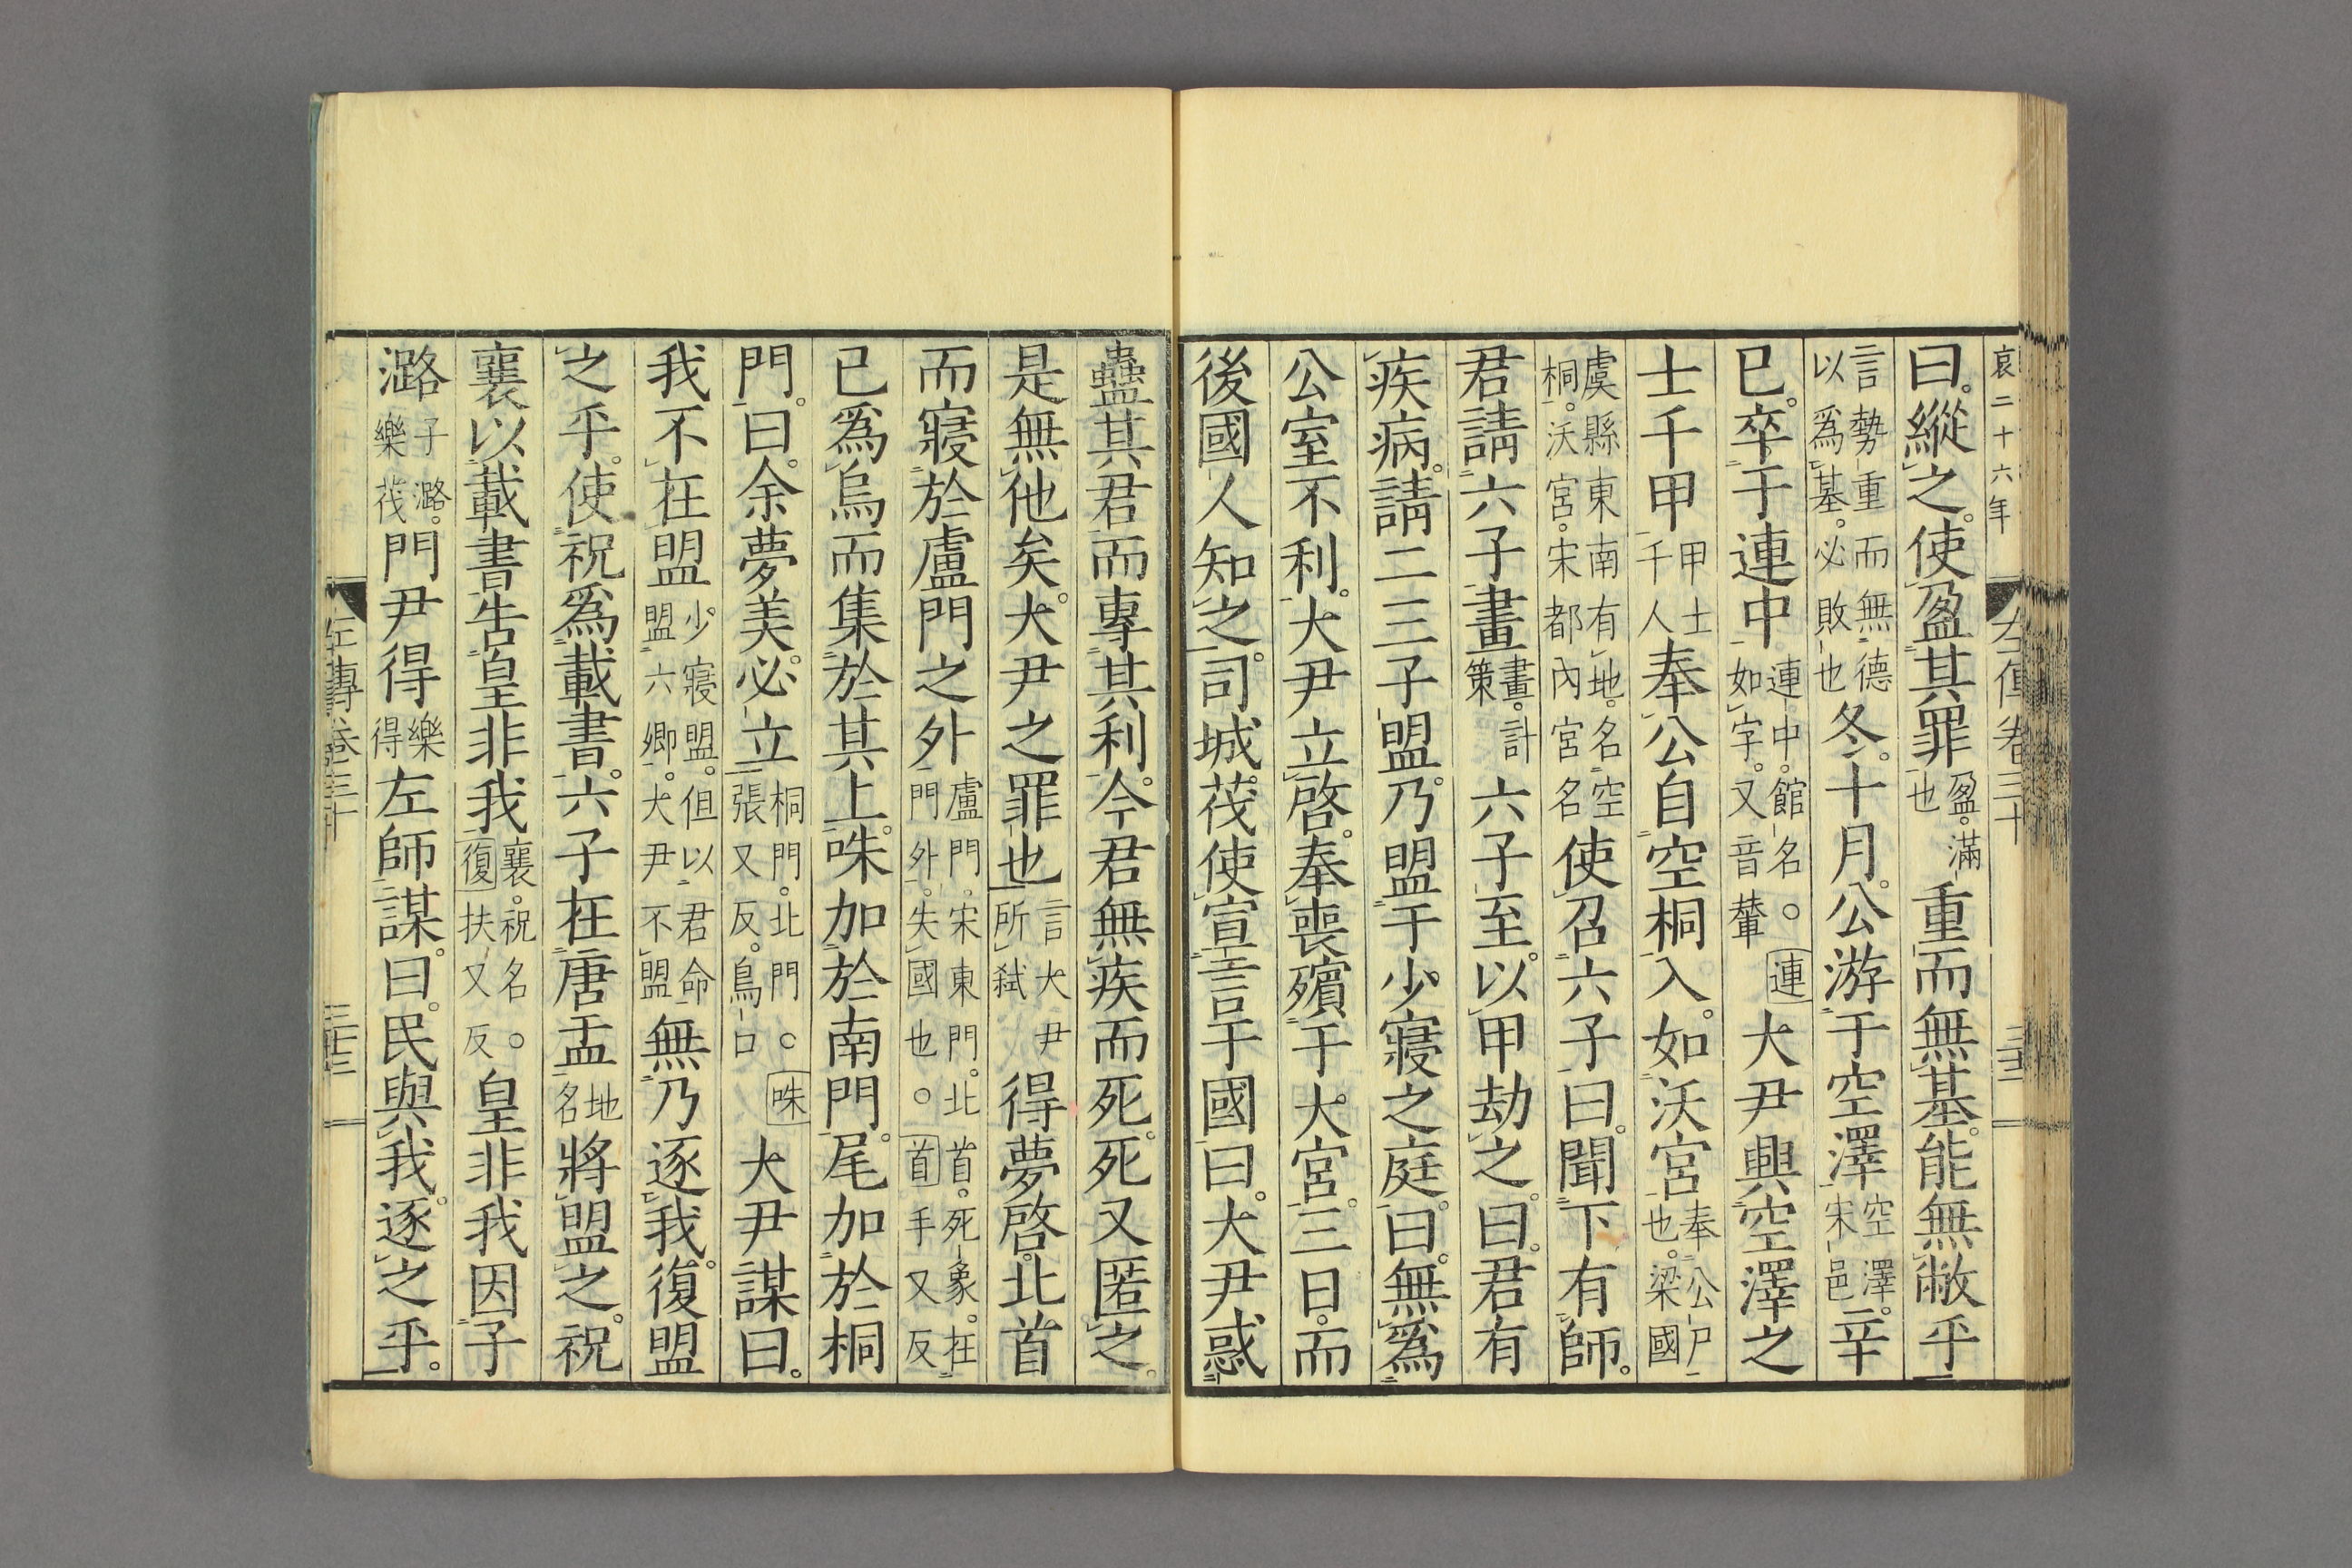 哀二十六年
左傳卷三十
曰。縱之。使盈其罪盈。滿也重而無基。能無敝乎
言勢重而無德以爲基。必敗也冬。十月。公游于空澤空澤。宋邑辛
巳。卒于連中連中。館名。○連如字。又音輦大尹興空澤之
士千甲甲士千人奉公自空桐入。如沃宮奉公尸也。梁國
虞縣東南有地。名空桐。沃宮。宋都內宮名使召六子曰。聞下有師。
君請六子畫畫。計策六子至。以甲劫之。曰。君有
疾病。請二三子盟。乃盟于少寢之庭。曰。無爲
公室不利。大尹立啓。奉喪殯于大宮。三日。而
後國人知之。司城茷使宣言于國曰。大尹惑
蠱其君而專其利。今君無疾而死。死又匿之。
是無他矣。大尹之罪也言大尹所弒得夢啓。北首
而寢於盧門之外盧門。宋東門。北首。死象。在門外。失國也。○首手又反
已爲烏而集於其上。咮加於南門。尾加於桐
門。曰。余夢美。必立桐門。北門。○咮張又反。鳥口大尹謀曰。
我不在盟少寢盟。但以君命盟六卿。大尹不盟無乃逐我。復盟
之乎。使祝爲載書。六子在唐盂地名將盟之。祝
襄以載書告皇非我襄。祝名。○復扶又反皇非我因子
潞子潞。樂茷門尹得樂得左師謀。曰。民與我。逐之乎。
左傳卷三十